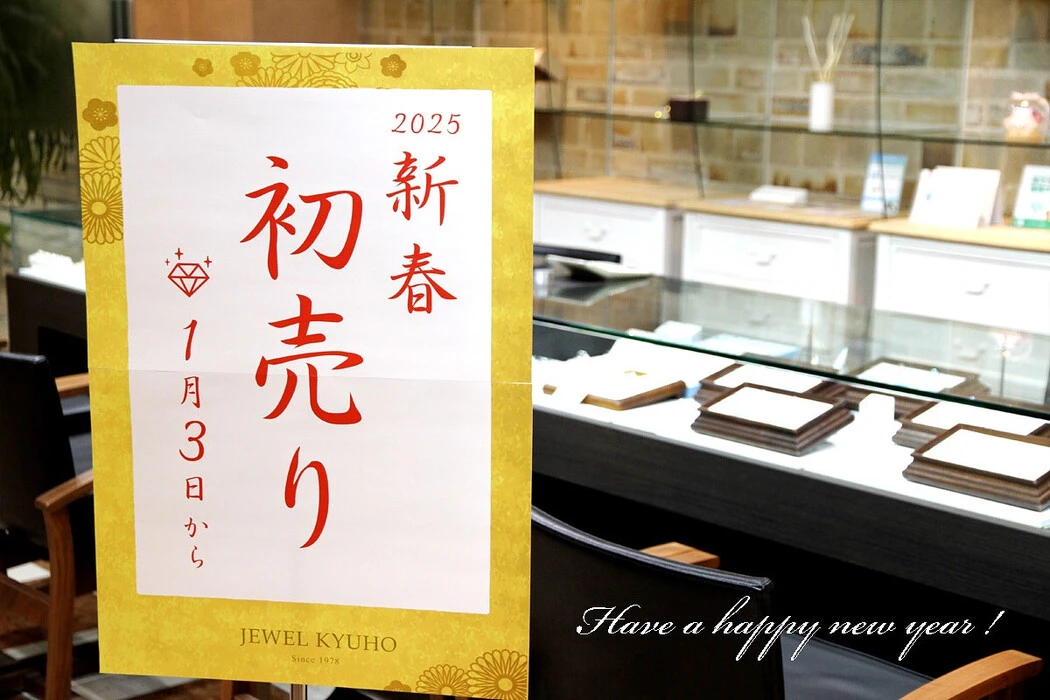 2025
新春
初売り
1月3日から
JEWEL KYUHO
Since 1978
Have a happy new year !